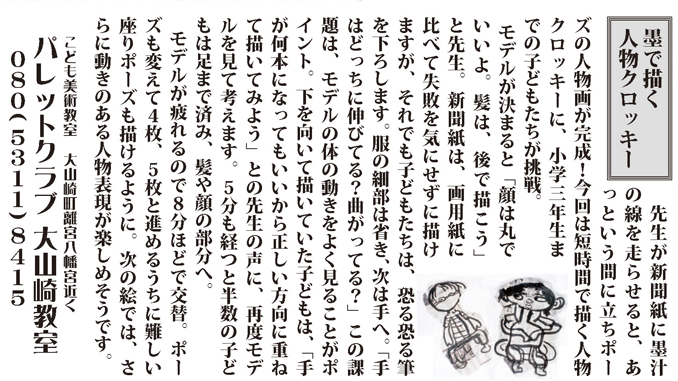 墨で描く
人物クロッキー
先生が新聞紙に墨汁
の線を走らせると、あ
っという間に立ちポー
ズの人物画が完成!今回は短時間で描く人物
クロッキーに、小学三年生ま
での子どもたちが挑戦。
モデルが決まると「顔は丸で
いいよ。髪は、後で描こう」
と先生。新聞紙は、画用紙に
比べて失敗を気にせずに描け
ますが、それでも子どもたちは、恐る恐る筆
を下ろします。服の細部は省き、次は手へ。「手
はどっちに伸びてる?曲がってる?」この課
題は、モデルの体の動きをよく見ることがポ
イント。下を向いて描いていた子どもは、「手
が何本になってもいいから正しい方向に重ね
て描いてみよう」との先生の声に、再度モデ
ルを見て考えます。5分も経つと半数の子ど
もは足まで済み、髪や顔の部分へ。
モデルが疲れるので8分ほどで交替。ポー
ズも変えて4枚、5枚と進めるうちに難しい
座りポーズも描けるように。次の絵では、さ
らに動きのある人物表現が楽しめそうです。
こども美術教室 大山崎町離宮八幡宮近く
パレットクラブ 大山崎教室
080(5311)8415